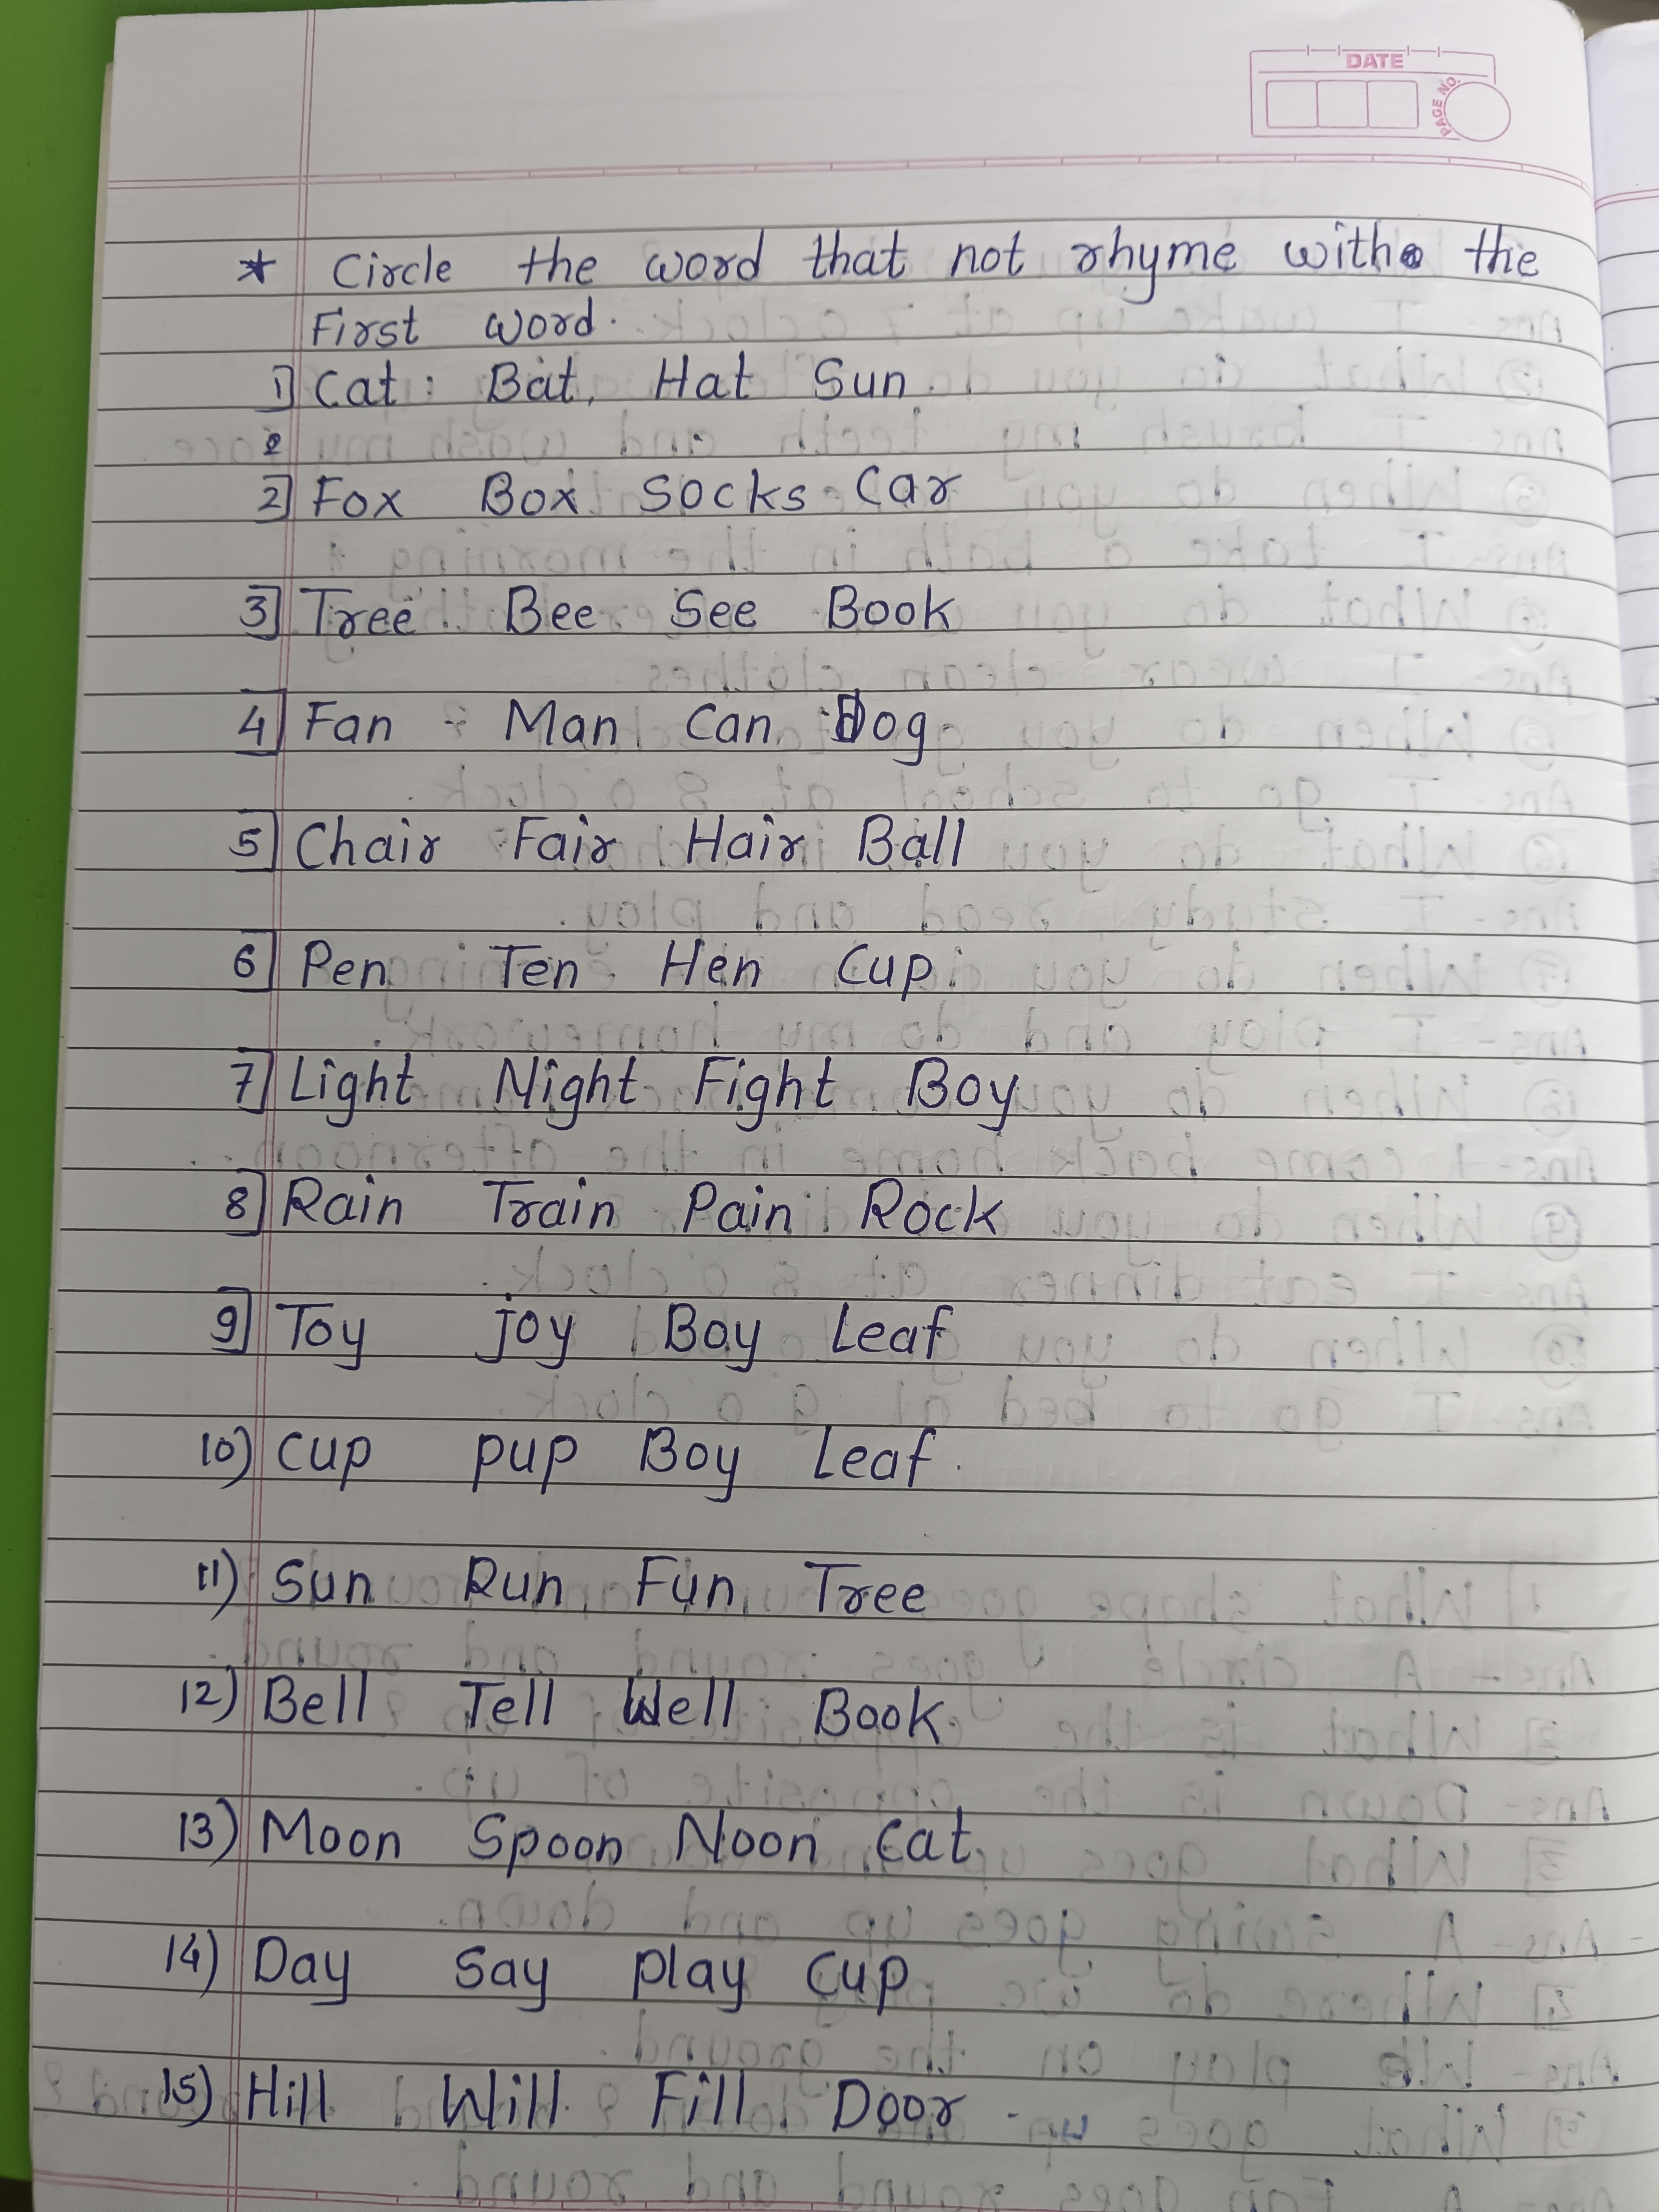 DATE
PAGE NO.
* Circle the word that not rhyme with the
First word.
1] Cat : Bat, Hat Sun.
2
2] Fox Box Socks Car
3] Tree Bee See Book
4] Fan Man Can Dog
5] Chair Fair Hair Ball
6] Pen Ten Hen Cup
7] Light Night Fight Boy
8] Rain Train Pain Rock
9] Toy joy Boy Leaf
10) Cup pup Boy Leaf.
11) Sun Run Fun Tree
12) Bell Tell Well Book.
13) Moon Spoon Noon Cat.
14) Day Say play Cup
15) Hill Will Fill Door